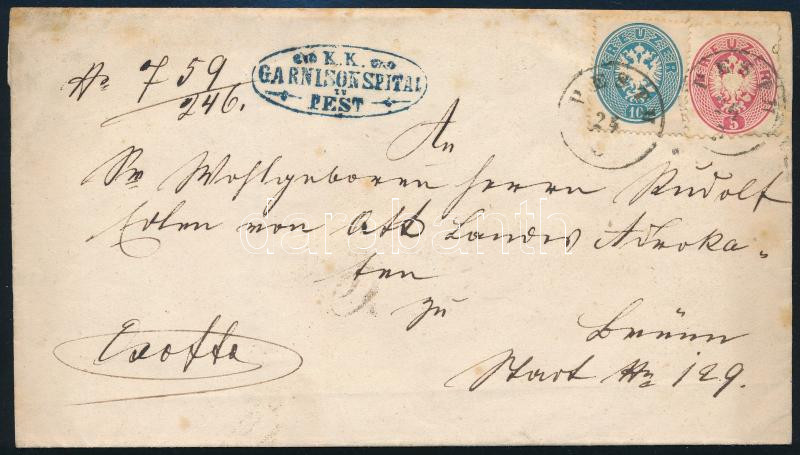 No 759/246.
K.K.
GARNISONSPITAL
IN
PEST
KREUZER
10
KREUZER
5
PESTH
23
PESTH
An
Sr Wohlgeboren Herrn Rudolf
Edlen von Ott Landes Advoka-
ten
zu
Brünn
Stadt No 129.
Ex offo
darabanth